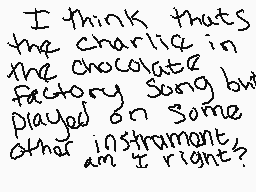 I think thats
the charlie in
the chocolate
factory song but
played on some
other instrament,
am I right?